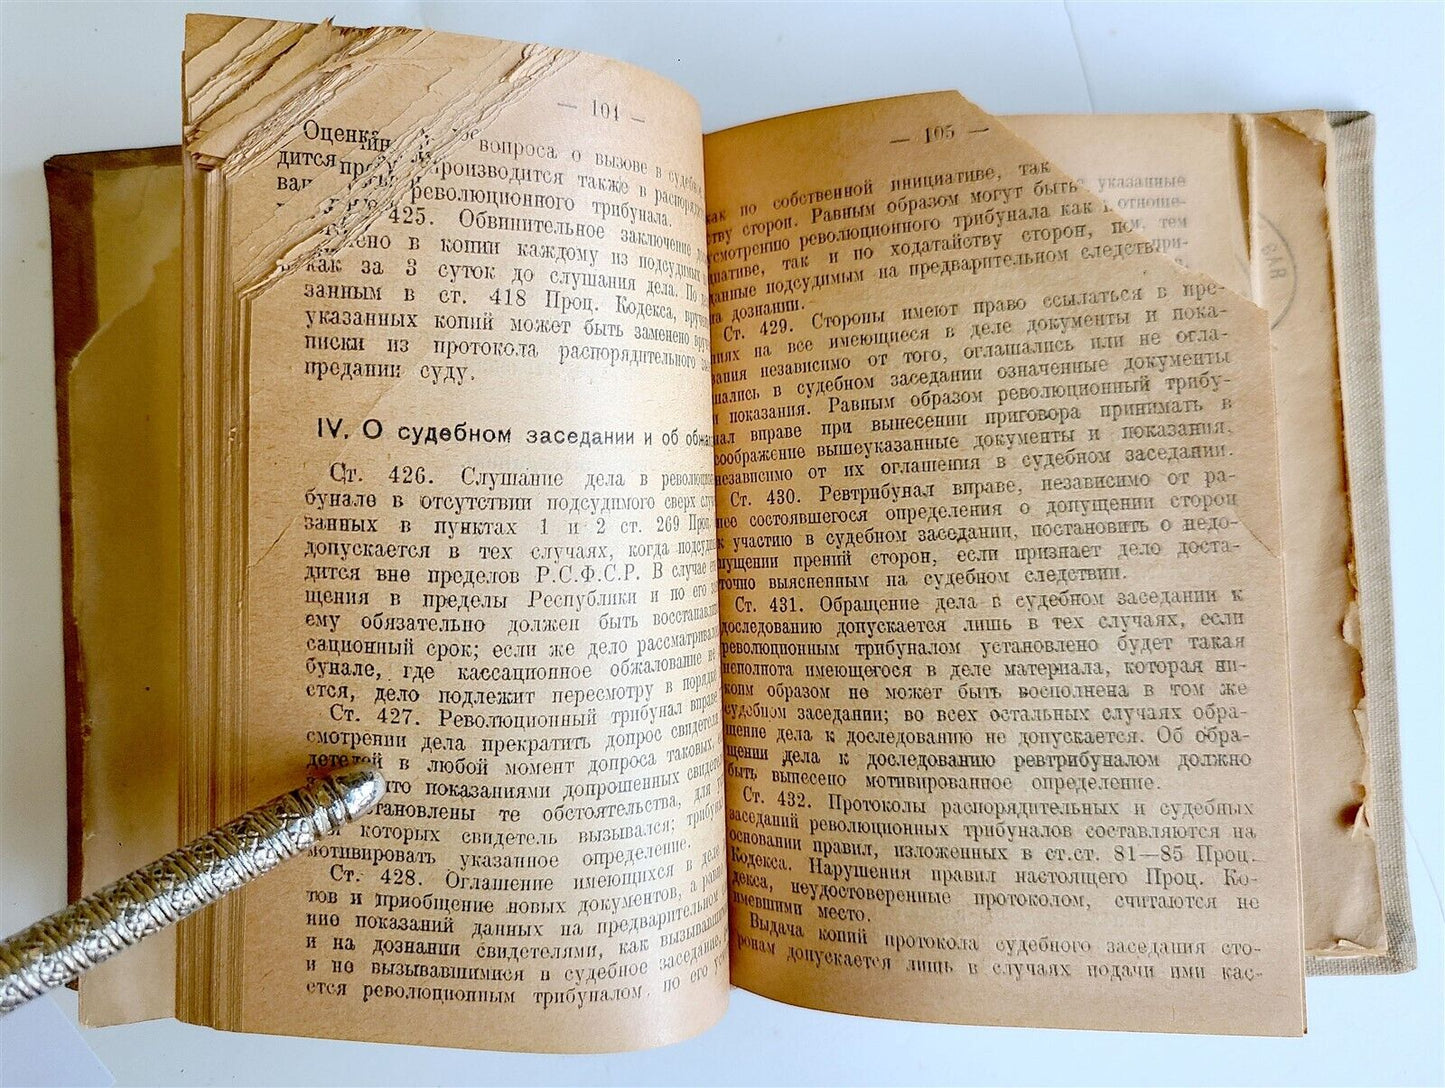 — 104 —
вопроса о вызове в
производится также в
революционного трибунала.
425. Обвинительное заключение
в копии каждому из подсудимых
как за 3 суток до слушания дела. По
занным в ст. 418 Проц. Кодекса,
указанных копий может быть заменено
писки из протокола распорядительного
предании суду.
IV. О судебном заседании и об
Ст. 426. Слушание дела в
бунале в отсутствии подсудимого сверх
занных в пунктах 1 и 2 ст. 269 Проц.
допускается в тех случаях, когда
дится вне пределов Р.С.Ф.С.Р. В случае
щения в пределы Республики и по его
ему обязательно должен быть
сационный срок; если же дело
бунале, где кассационное обжалование не
ется, дело подлежит пересмотру в
Ст. 427. Революционный трибунал вправе
смотрении дела прекратить допрос
детелей в любой момент допроса таковых,
что показаниями допрошенных
те обстоятельства, для
которых свидетель вызывался;
мотивировать указанное определение.
Ст. 428. Оглашение имеющихся в деле
тов и приобщение новых документов, а
ние показаний данных на предварительном
и на дознании свидетелями, как
и не вызывавшимися в судебное заседание,
ется революционным трибуналом по его
— 105 —
как по собственной инициативе, так
ству сторон. Равным образом могут быть указанные
усмотрению революционного трибунала как
циативе, так и по ходатайству сторон, тем
данные подсудимым на предварительном
на дознании.
Ст. 429. Стороны имеют право ссылаться в пре-
ниях на все имеющиеся в деле документы и пока-
зания независимо от того, оглашались или не огла-
шались в судебном заседании означенные документы
и показания. Равным образом революционный трибу-
нал вправе при вынесении приговора принимать в
соображение вышеуказанные документы и показания,
независимо от их оглашения в судебном заседании.
Ст. 430. Ревтрибунал вправе, независимо от ра-
нее состоявшегося определения о допущении сторон
к участию в судебном заседании, постановить о недо-
пущении прений сторон, если признает дело доста-
точно выясненным на судебном следствии.
Ст. 431. Обращение дела в судебном заседании к
доследованию допускается лишь в тех случаях, если
революционным трибуналом установлено будет такая
неполнота имеющегося в деле материала, которая ни-
коим образом не может быть восполнена в том же
судебном заседании; во всех остальных случаях обра-
щение дела к доследованию не допускается. Об обра-
щении дела к доследованию ревтрибуналом должно
быть вынесено мотивированное определение.
Ст. 432. Протоколы распорядительных и судебных
заседаний революционных трибуналов составляются на
основании правил, изложенных в ст.ст. 81—85 Проц.
Кодекса. Нарушения правил настоящего Проц. Ко-
декса, неудостоверенные протоколом, считаются не
имевшими место.
Выдача копий протокола судебного заседания сто-
ронам допускается лишь в случаях подачи ими кас-